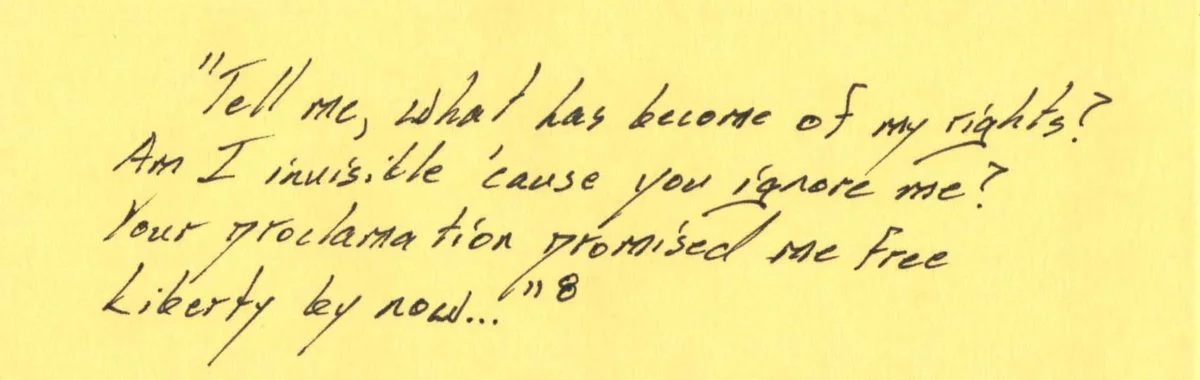 "Tell me, what has become of my rights?
Am I invisible 'cause you ignore me?
Your proclamation promised me free
Liberty by now..."8